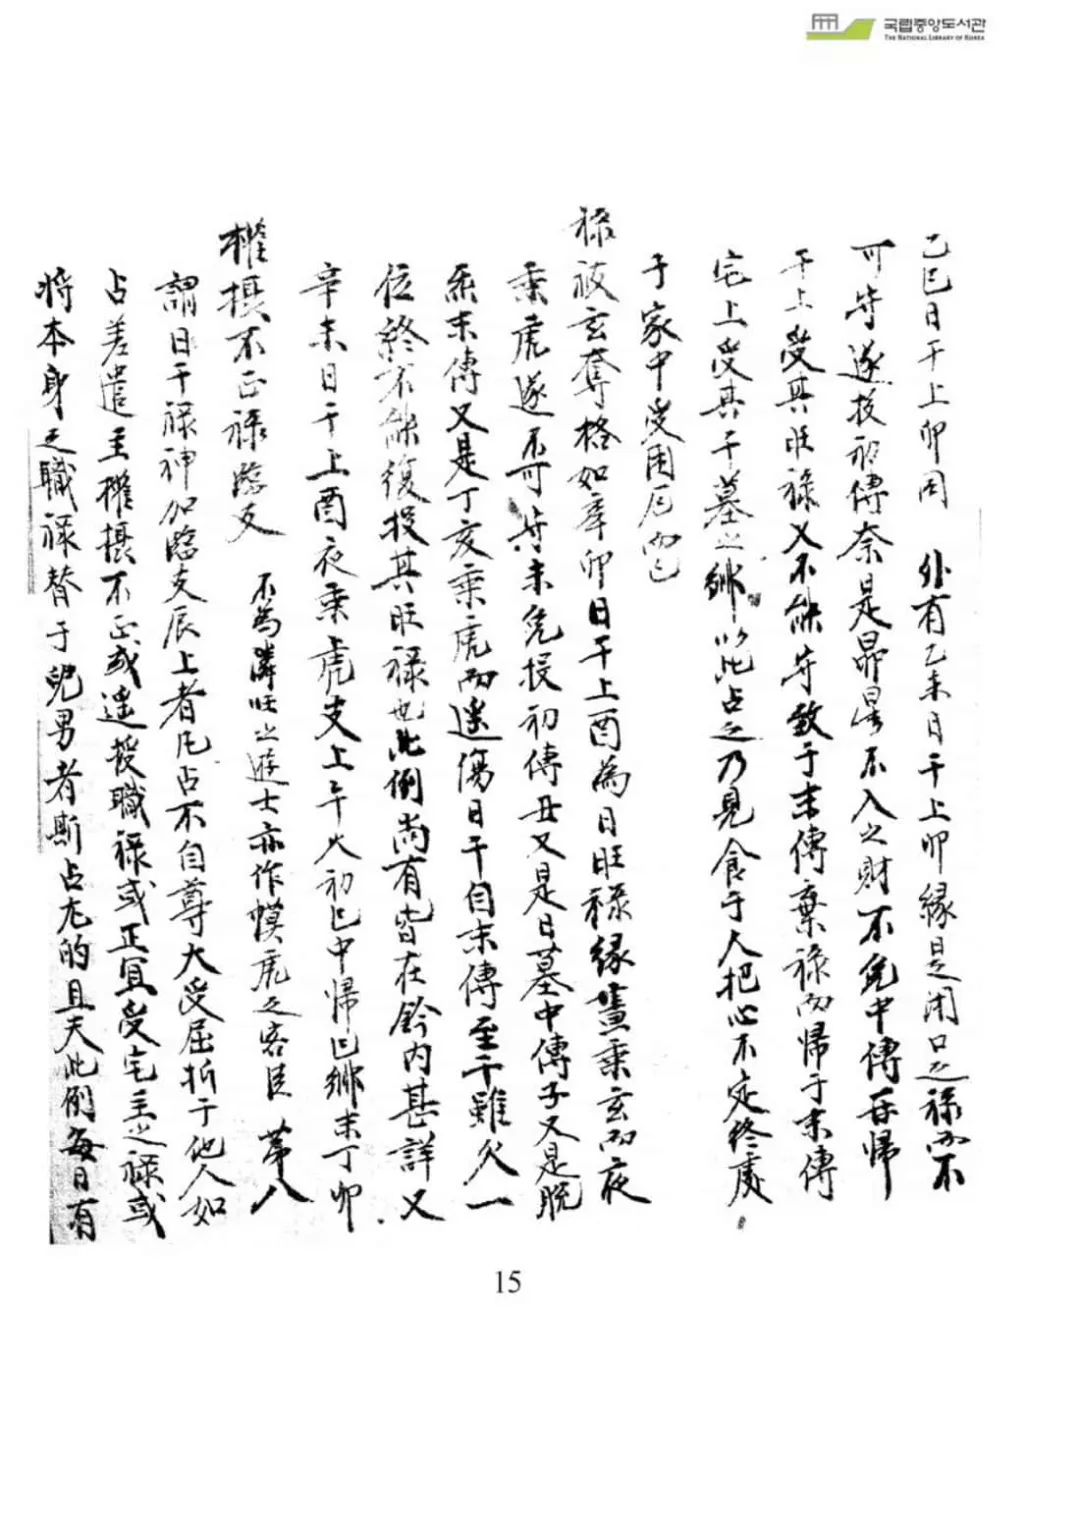 국립중앙도서관
THE NATIONAL LIBRARY OF KOREA
乙巳日干上卯同 外有乙未日干上卯緣是闭口之祿亦不
可守遂投初傳奈是昴星不入之財不免中傳并歸
干上受其旺祿又不能守致于末傳棄祿而歸于末傳
宅上受其干墓之鄉以此占之乃見食于人把心不定終處
于家中受困辱而已
祿被玄奪格如辛卯日干上酉為日旺祿緣晝乘玄而夜
乘虎遂不可守未免投初傳丑又是日墓中傳子又是脫
乘末傳又是丁亥乘虎而遙傷日干自末傳至干雖欠一
位終不能復投其旺祿也此例尚有皆在鈐內甚詳又
辛未日干上酉夜乘虎支上午火初巳中歸巳鄉末丁卯
權攝不正祿臨支 不為鄰旺之遊士亦作幞虎之客臣 苐八
謂日干祿神加臨支辰上者凡占不自尊大受屈折于他人如
占差遣主權攝不正或遥授職祿或正宜受宅主之祿或
將本身之職祿替于兒男者斯占尤的且夫此例每日有
15